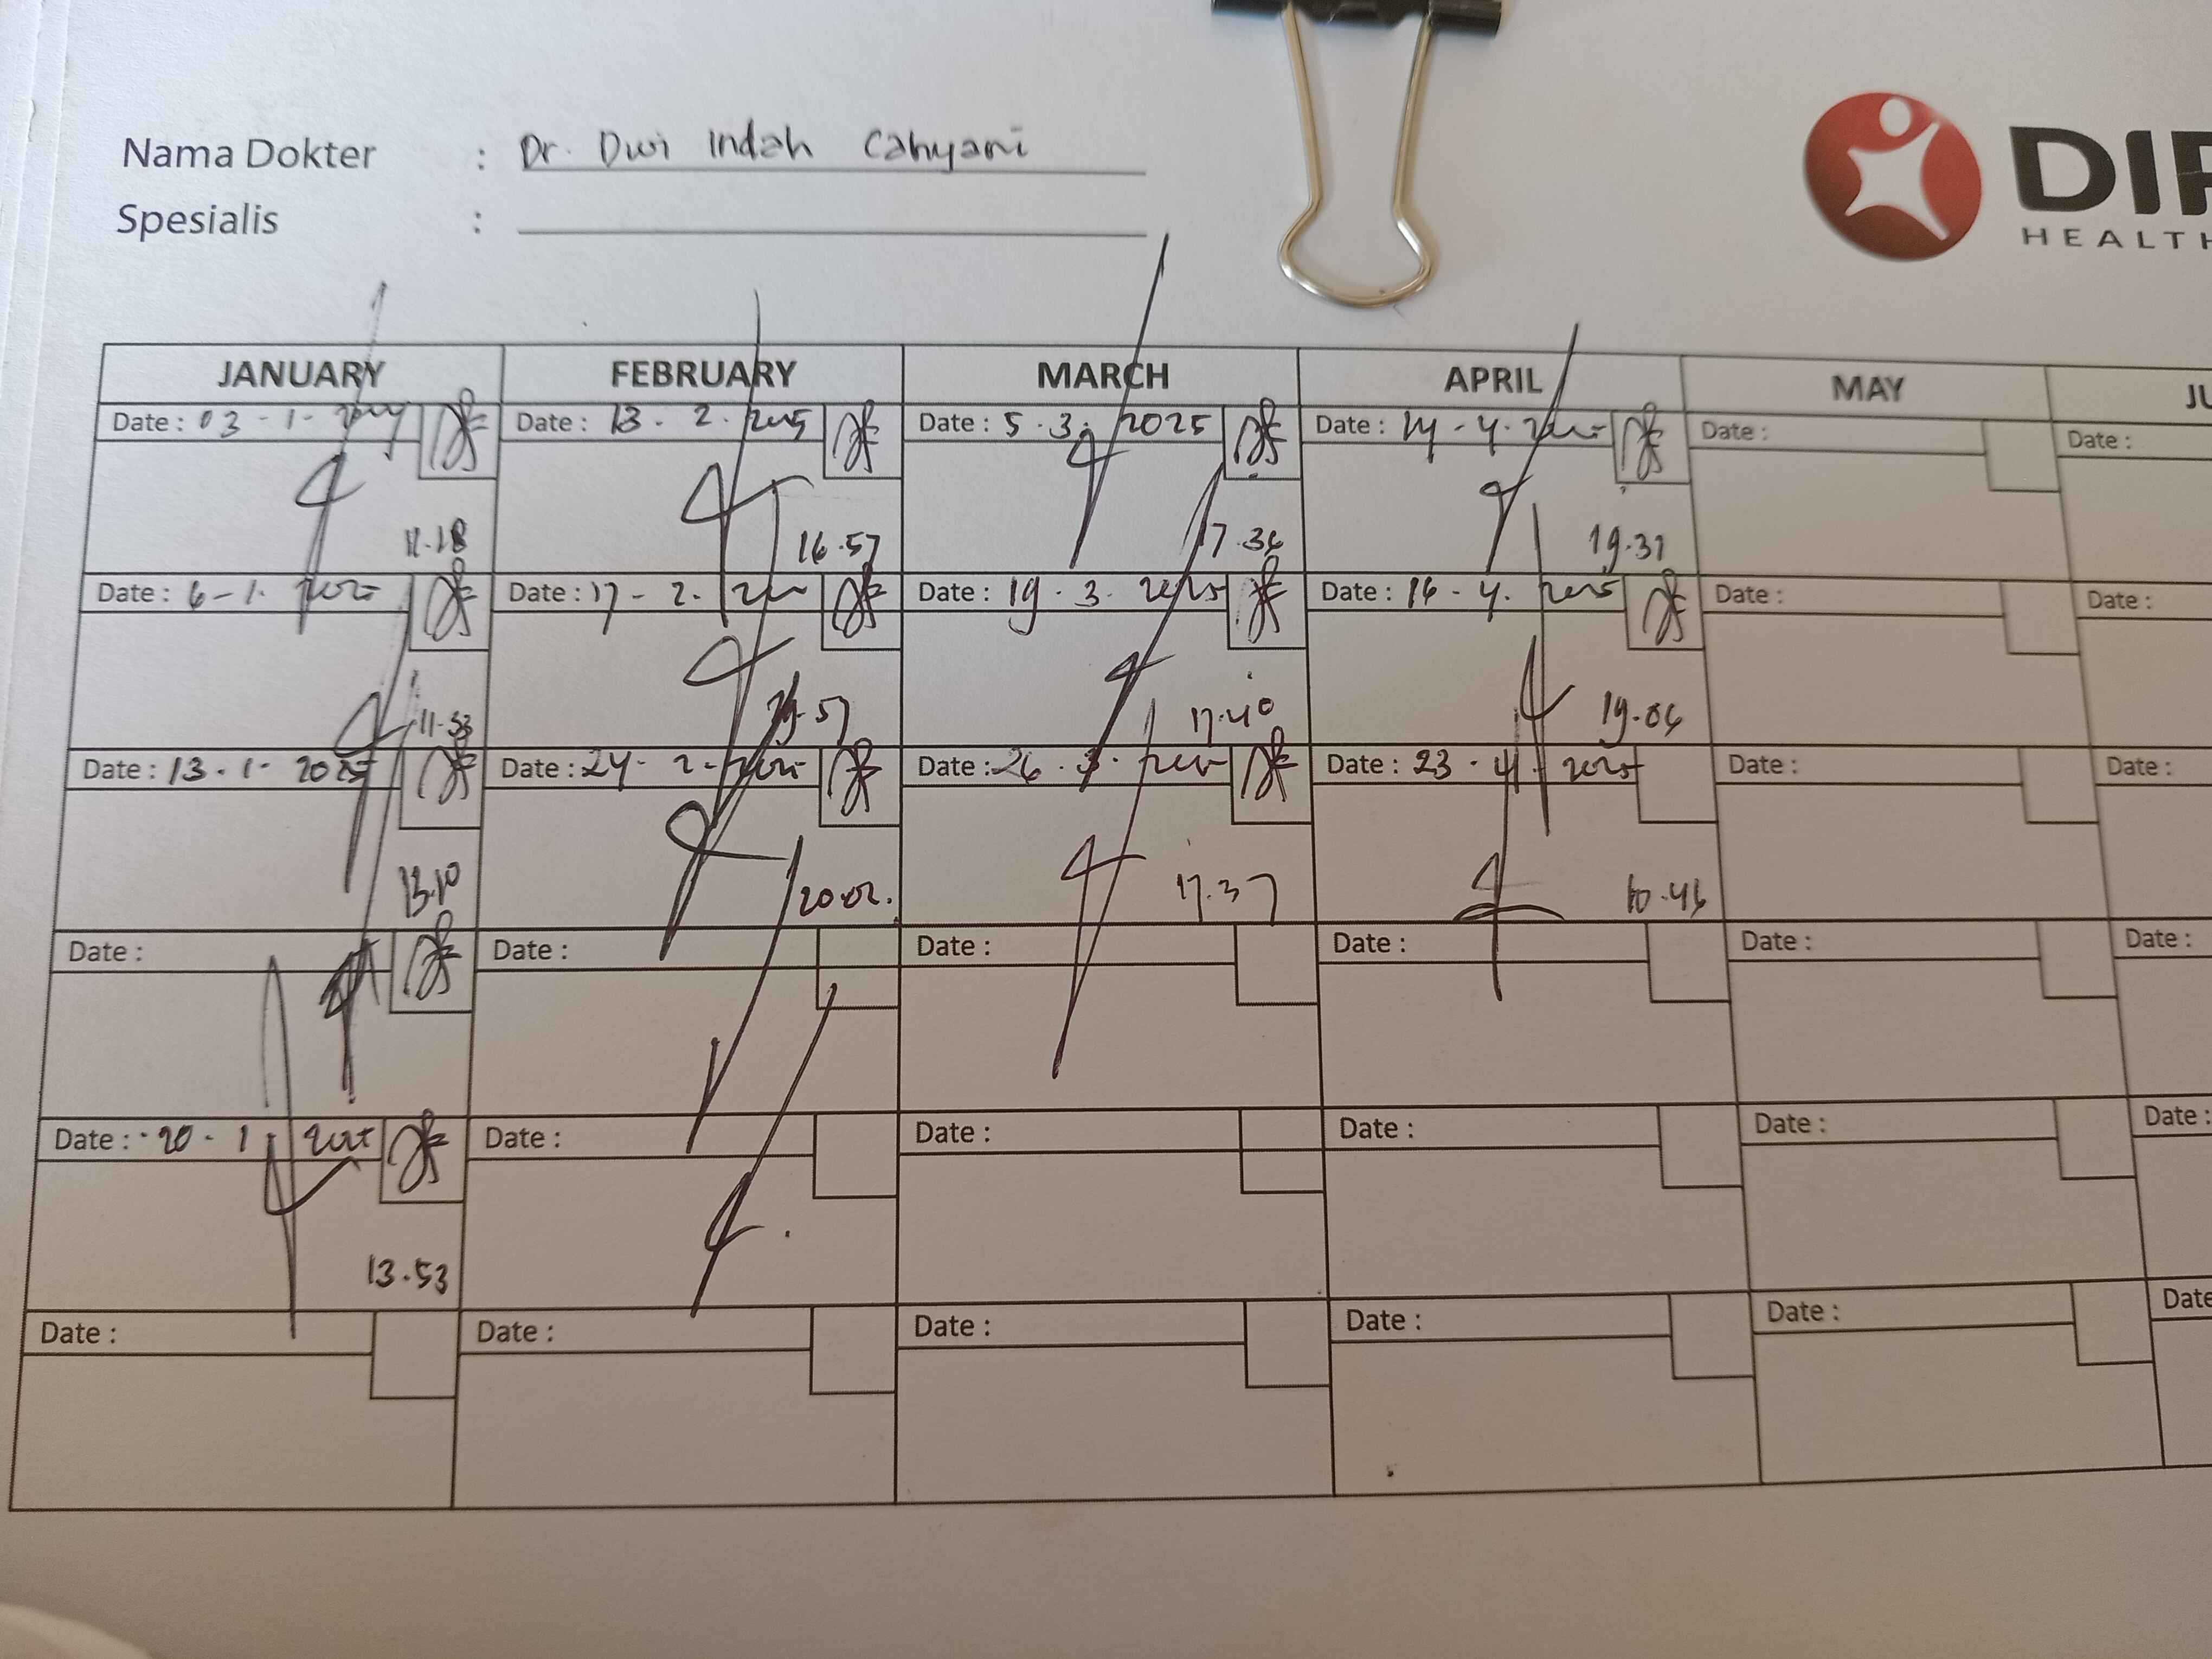 Nama Dokter : Dr. Dwi Indah Cahyani
Spesialis :
DIF
HEALTH
JANUARY FEBRUARY MARCH APRIL MAY JU
Date : 03 - 1 - Date : 13 . 2 . 2025 Date : 5 . 3 . 2025 Date : 14 - 4 . Date : Date :
11.18 16.57 17.36 19.31
Date : 6 - 1 . 2025 Date : 17 - 2 . Date : 19 . 3 . 2025 Date : 16 - 4 . 2025 Date : Date :
11.53 .57 17.40 19.06
Date : 13 . 1 - 2025 Date : 24 - 2 - Date : 26 . 3 . Date : 23 . 4 . 2025 Date : Date :
13.10 20.02. 17.37 10.46
Date : Date : Date : Date : Date : Date :
Date : 20 - 1 2025 Date : Date : Date : Date : Date :
13.53
Date : Date : Date : Date : Date : Date